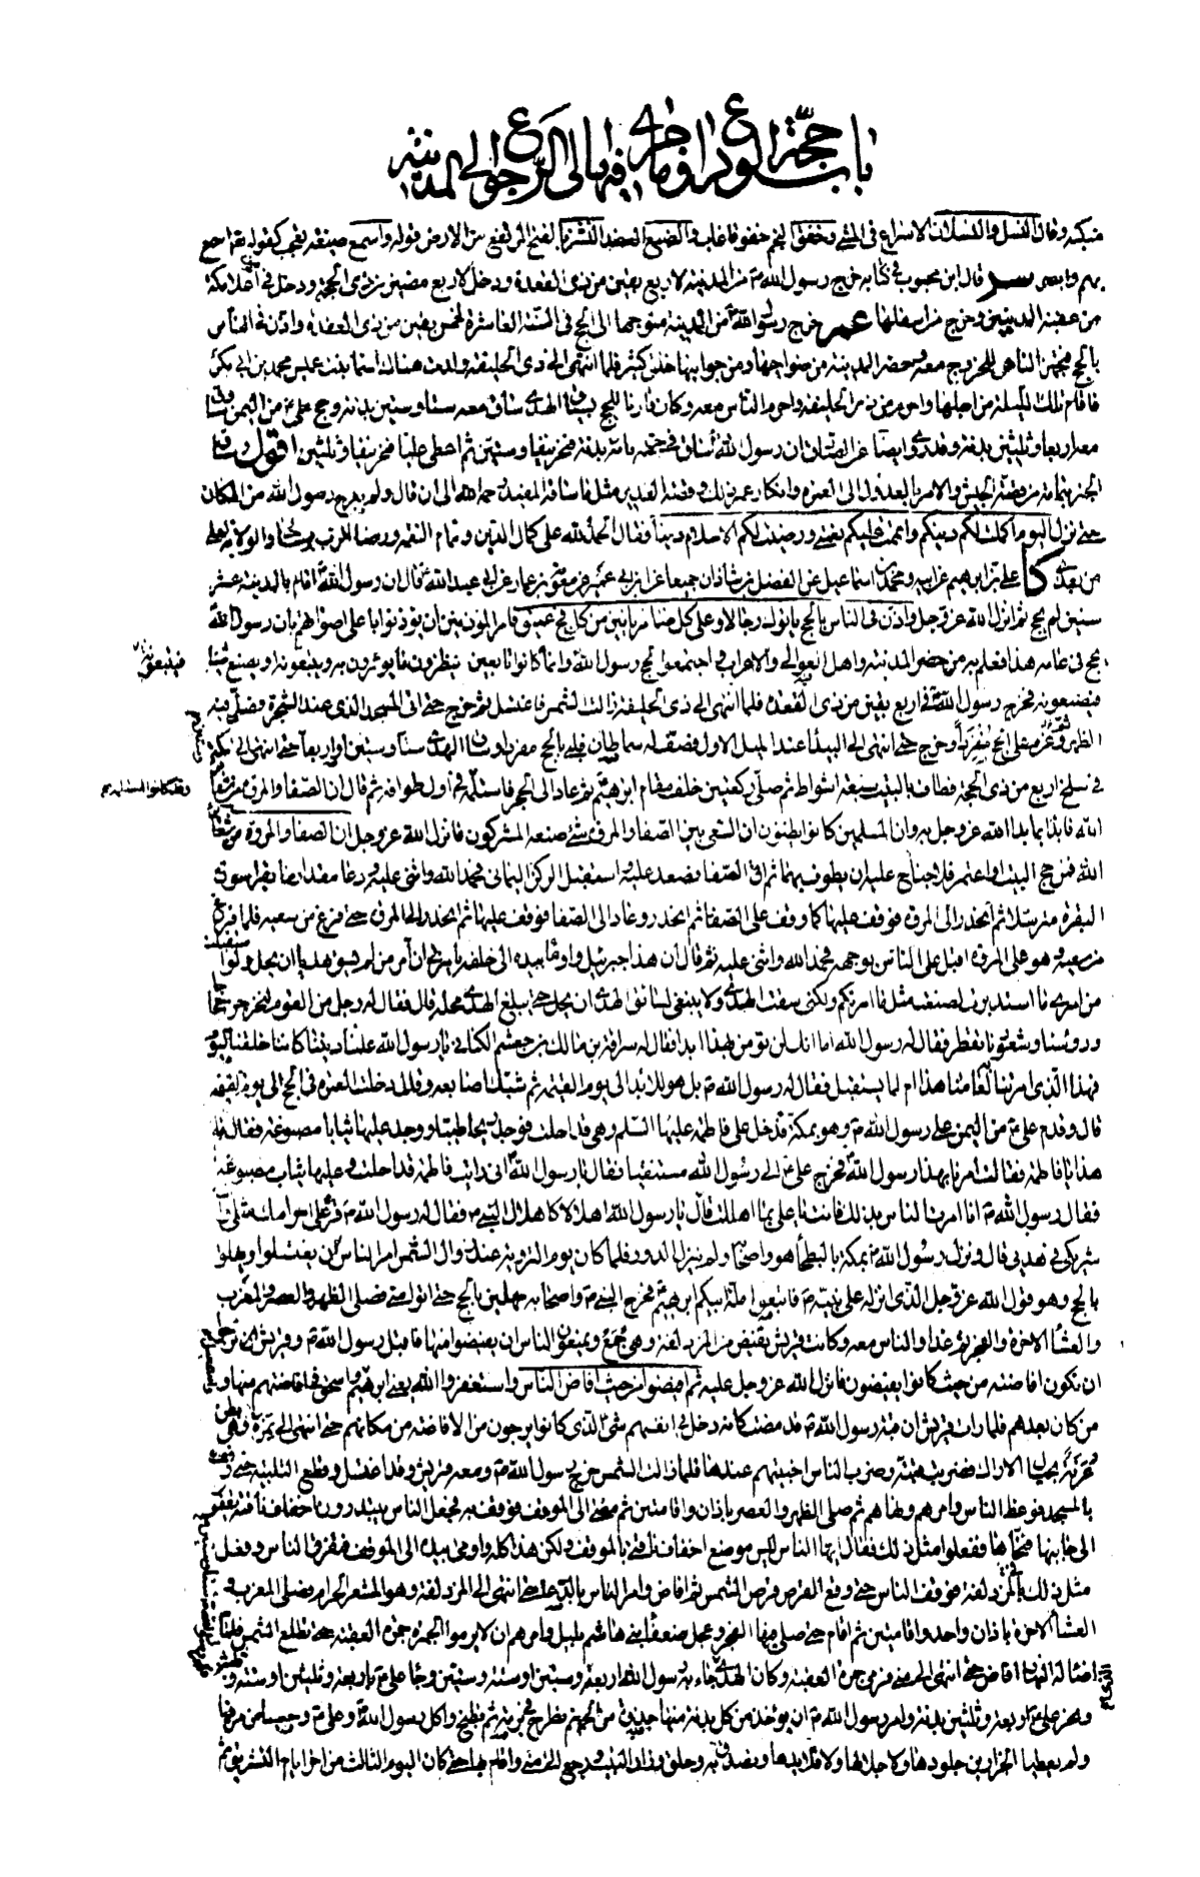 باب حجة الوداع وما جرى فيها الى الرجوع الى المدينة
منكبه وقال النسل والنسلان الاسراع في المشي وخفق النجم خفوقا غاب والضبع العضد النشز بالفتح المرتفع من الارض قوله واسمع صيغة تعجب كقوله تعالى اسمع
بهم وابصر سر قال ابن محبوب في كتابه خرج رسول الله ص من المدينة لاربع بقين من ذي القعدة ودخل لاربع مضين من ذي الحجة ودخل من اعلا مكة
من عقبة المدنيين وخرج من اسفلها عم خرج رسول الله من المدينة متوجها الى الحج في السنة العاشرة لخمس بقين من ذي القعدة واذن في الناس
بالحج فتجهز الناس للخروج معه وحضر المدينة من ضواحيها ومن جوانبها خلق كثير فلما انتهى الى ذي الحليفة ولدت هناك اسماء بنت عميس محمد بن ابي بكر
فاقام تلك الليلة من اجلها واحرم من ذي الحليفة واحرم الناس معه وكان قارنا للحج بسياق الهدي ساق معه ستا وستين بدنة وحج علي ع من اليمن وساق
معه اربعا وثلثين بدنة وفيه ايضا عن الصادق ان رسول الله ساق في حجته مائة بدنة فنحر نيفا وستين ثم اعطى عليا فنحر نيفا وثلثين اقول وساق
الخبر بتمامه من قصة الجيش والامر بالعدول الى العمرة وانكار عمر ذلك وقصة الغدير مثل ما ساقه المفيد رحمه الله الى ان قال ولم يبرح رسول الله من المكان
حتى نزل اليوم اكملت لكم دينكم واتممت عليكم نعمتي ورضيت لكم الاسلام دينا فقال الحمد لله على كمال الدين وتمام النعمة ورضا الرب برسالتي والولاية لعلي
من بعدي كا علي بن ابراهيم عن ابيه ومحمد بن اسماعيل عن الفضل بن شاذان جميعا عن ابن ابي عمير عن معوية بن عمار عن ابي عبد الله ع قال ان رسول الله اقام بالمدينة عشر
سنين لم يحج ثم انزل الله عز وجل واذن في الناس بالحج ياتوك رجالا وعلى كل ضامر ياتين من كل فج عميق فامر المؤذنين ان يؤذنوا باعلى اصواتهم بان رسول الله
يحج في عامه هذا فعلم به من حضر المدينة واهل العوالي والاعراب واجتمعوا لحج رسول الله وانما كانوا تابعين ينظرون ما يؤمرون به ويتبعونه او يصنع شيئا
فيصنعونه فخرج رسول الله في اربع بقين من ذي القعدة فلما انتهى الى ذي الحليفة زالت الشمس فاغتسل ثم خرج حتى اتى المسجد الذي عند الشجرة فصلى فيه
الظهر وعزم على الحج مفردا وخرج حتى انتهى الى البيداء عند الميل الاول فصف له سماطان فلبى بالحج مفردا وساق الهدي ستا وستين او اربعا حتى انتهى الى مكة
في سلخ اربع من ذي الحجة فطاف بالبيت سبعة اشواط ثم صلى ركعتين خلف مقام ابراهيم ثم عاد الى الحجر فاستلمه في اول طوافه ثم قال ان الصفا والمروة من شعائر
الله فابدأ بما بدأ الله عز وجل به وان المسلمين كانوا يظنون ان السعي بين الصفا والمروة شيء صنعه المشركون فانزل الله عز وجل ان الصفا والمروة من شعائر
الله فمن حج البيت او اعتمر فلا جناح عليه ان يطوف بهما ثم اتى الصفا فصعد عليه استقبل الركن اليماني فحمد الله واثنى عليه ودعا مقدار ما يقرأ سورة
البقرة مترسلا ثم انحدر الى المروة فوقف عليها كما وقف على الصفا ثم انحدر وعاد الى الصفا فوقف عليها ثم انحدر الى المروة حتى فرغ من سعيه فلما فرغ
من سعيه وهو على المروة اقبل على الناس بوجهه فحمد الله واثنى عليه ثم قال ان هذا جبرئيل واومأ بيده الى خلفه يامرني ان آمر من لم يسق هديا ان يحل ولو
من امري ما استدبرت لصنعت مثل ما امرتكم ولكني سقت الهدي ولا ينبغي لسائق الهدي ان يحل حتى يبلغ الهدي محله قال فقال له رجل من القوم لنخرجن حجاجا
ورؤسنا وشعورنا تقطر فقال له رسول الله اما انك لن تؤمن بهذا ابدا فقال له سراقة بن مالك بن جعشم الكناني يا رسول الله علمنا ديننا كانا خلقنا اليوم
فهذا الذي امرتنا به لعامنا هذا ام لما يستقبل فقال له رسول الله ص بل هو للابد الى يوم القيمة ثم شبك اصابعه وقال دخلت العمرة في الحج الى يوم القيمة
قال وقدم علي ع من اليمن على رسول الله ص وهو بمكة فدخل على فاطمة عليها السلم وهي قد احلت فوجد ريحا طيبة ووجد عليها ثيابا مصبوغة فقال ما
هذا يا فاطمة فقالت امرنا بهذا رسول الله فخرج علي ع الى رسول الله مستفتيا فقال يا رسول الله اني رايت فاطمة قد احلت وعليها ثياب مصبوغة
فقال رسول الله ص انا امرت الناس بذلك فانت يا علي بما اهللت قال يا رسول الله اهلالا كاهلال النبي ص فقال له رسول الله ص قر على احرامك مثلي وانت
شريكي في هديي قال ونزل رسول الله ص بمكة بالبطحاء هو واصحابه ولم ينزل الدور فلما كان يوم التروية عند زوال الشمس امر الناس ان يغتسلوا ويهلوا
بالحج وهو قول الله عز وجل الذي انزله على نبيه ص فاتبعوا ملة ابيكم ابراهيم فخرج النبي ص واصحابه مهلين بالحج حتى اتوا منى فصلى الظهر والعصر والمغرب
والعشاء الآخرة والفجر ثم غدا والناس معه وكانت قريش تفيض من المزدلفة وهي جمع ويمنعون الناس ان يفيضوا منها فاقبل رسول الله ص وقريش ترجو
ان تكون افاضته من حيث كانوا يفيضون فانزل الله عز وجل عليه ثم افيضوا من حيث افاض الناس واستغفروا الله يعني ابراهيم واسمعيل واسحق في افاضتهم منها و
من كان بعدهم فلما رات قريش ان قبة رسول الله ص قد مضت كانه دخل في انفسهم شيء للذي كانوا يرجون من الافاضة من مكانهم حتى انتهى الى نمرة وهي بطن
عرنة بحيال الاراك فضربت قبته وضرب الناس اخبيتهم عندها فلما زالت الشمس خرج رسول الله ص ومعه قريش وقد اغتسل وقطع التلبية حتى وقف
بالمسجد فوعظ الناس وامرهم ونهاهم ثم صلى الظهر والعصر باذان واقامتين ثم مضى الى الموقف فوقف به فجعل الناس يبتدرون اخفاف ناقته يقفون
الى جانبها فنحاها ففعلوا مثل ذلك فقال ايها الناس ليس موضع اخفاف ناقتي بالموقف ولكن هذا كله واومى بيده الى الموقف فتفرق الناس وفعل
مثل ذلك بالمزدلفة فوقف الناس حتى وقع القرص قرص الشمس ثم افاض وامر الناس بالدعة حتى انتهى الى المزدلفة وهو المشعر الحرام فصلى المغرب و
العشاء الآخرة باذان واحد واقامتين ثم اقام حتى صلى فيها الفجر وعجل ضعفاء بني هاشم بليل وامرهم ان لا يرموا الجمرة جمرة العقبة حتى تطلع الشمس فلما
اضاء له النهار افاض حتى انتهى الى منى فرمى جمرة العقبة وكان الهدي الذي جاء به رسول الله اربعة وستين او ستة وستين وجاء علي ع باربعة وثلثين او ستة و
ونحر علي ع اربعة وثلثين بدنة وامر رسول الله ص ان يؤخذ من كل بدنة منها جذوة من لحم ثم تطرح في برمة ثم تطبخ واكل رسول الله وعلي ع وحسيا من مرقها
ولم يعطيا الجزارين جلودها ولا جلالها ولا قلائدها وتصدق به وحلق وزار البيت ورجع الى منى واقام بها حتى كان اليوم الثالث من آخر ايام التشريق ثم